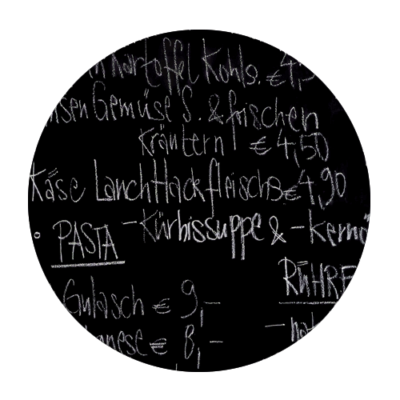 Kartoffel Kohls. €4,5
Gemüse S. & frischen
Kräutern € 4,50
Käse Lauch Hackfleischs €4,90
-Kürbissuppe & - Kern
PASTA
RÜHRE
Gulasch € 9,-
€ 8,-